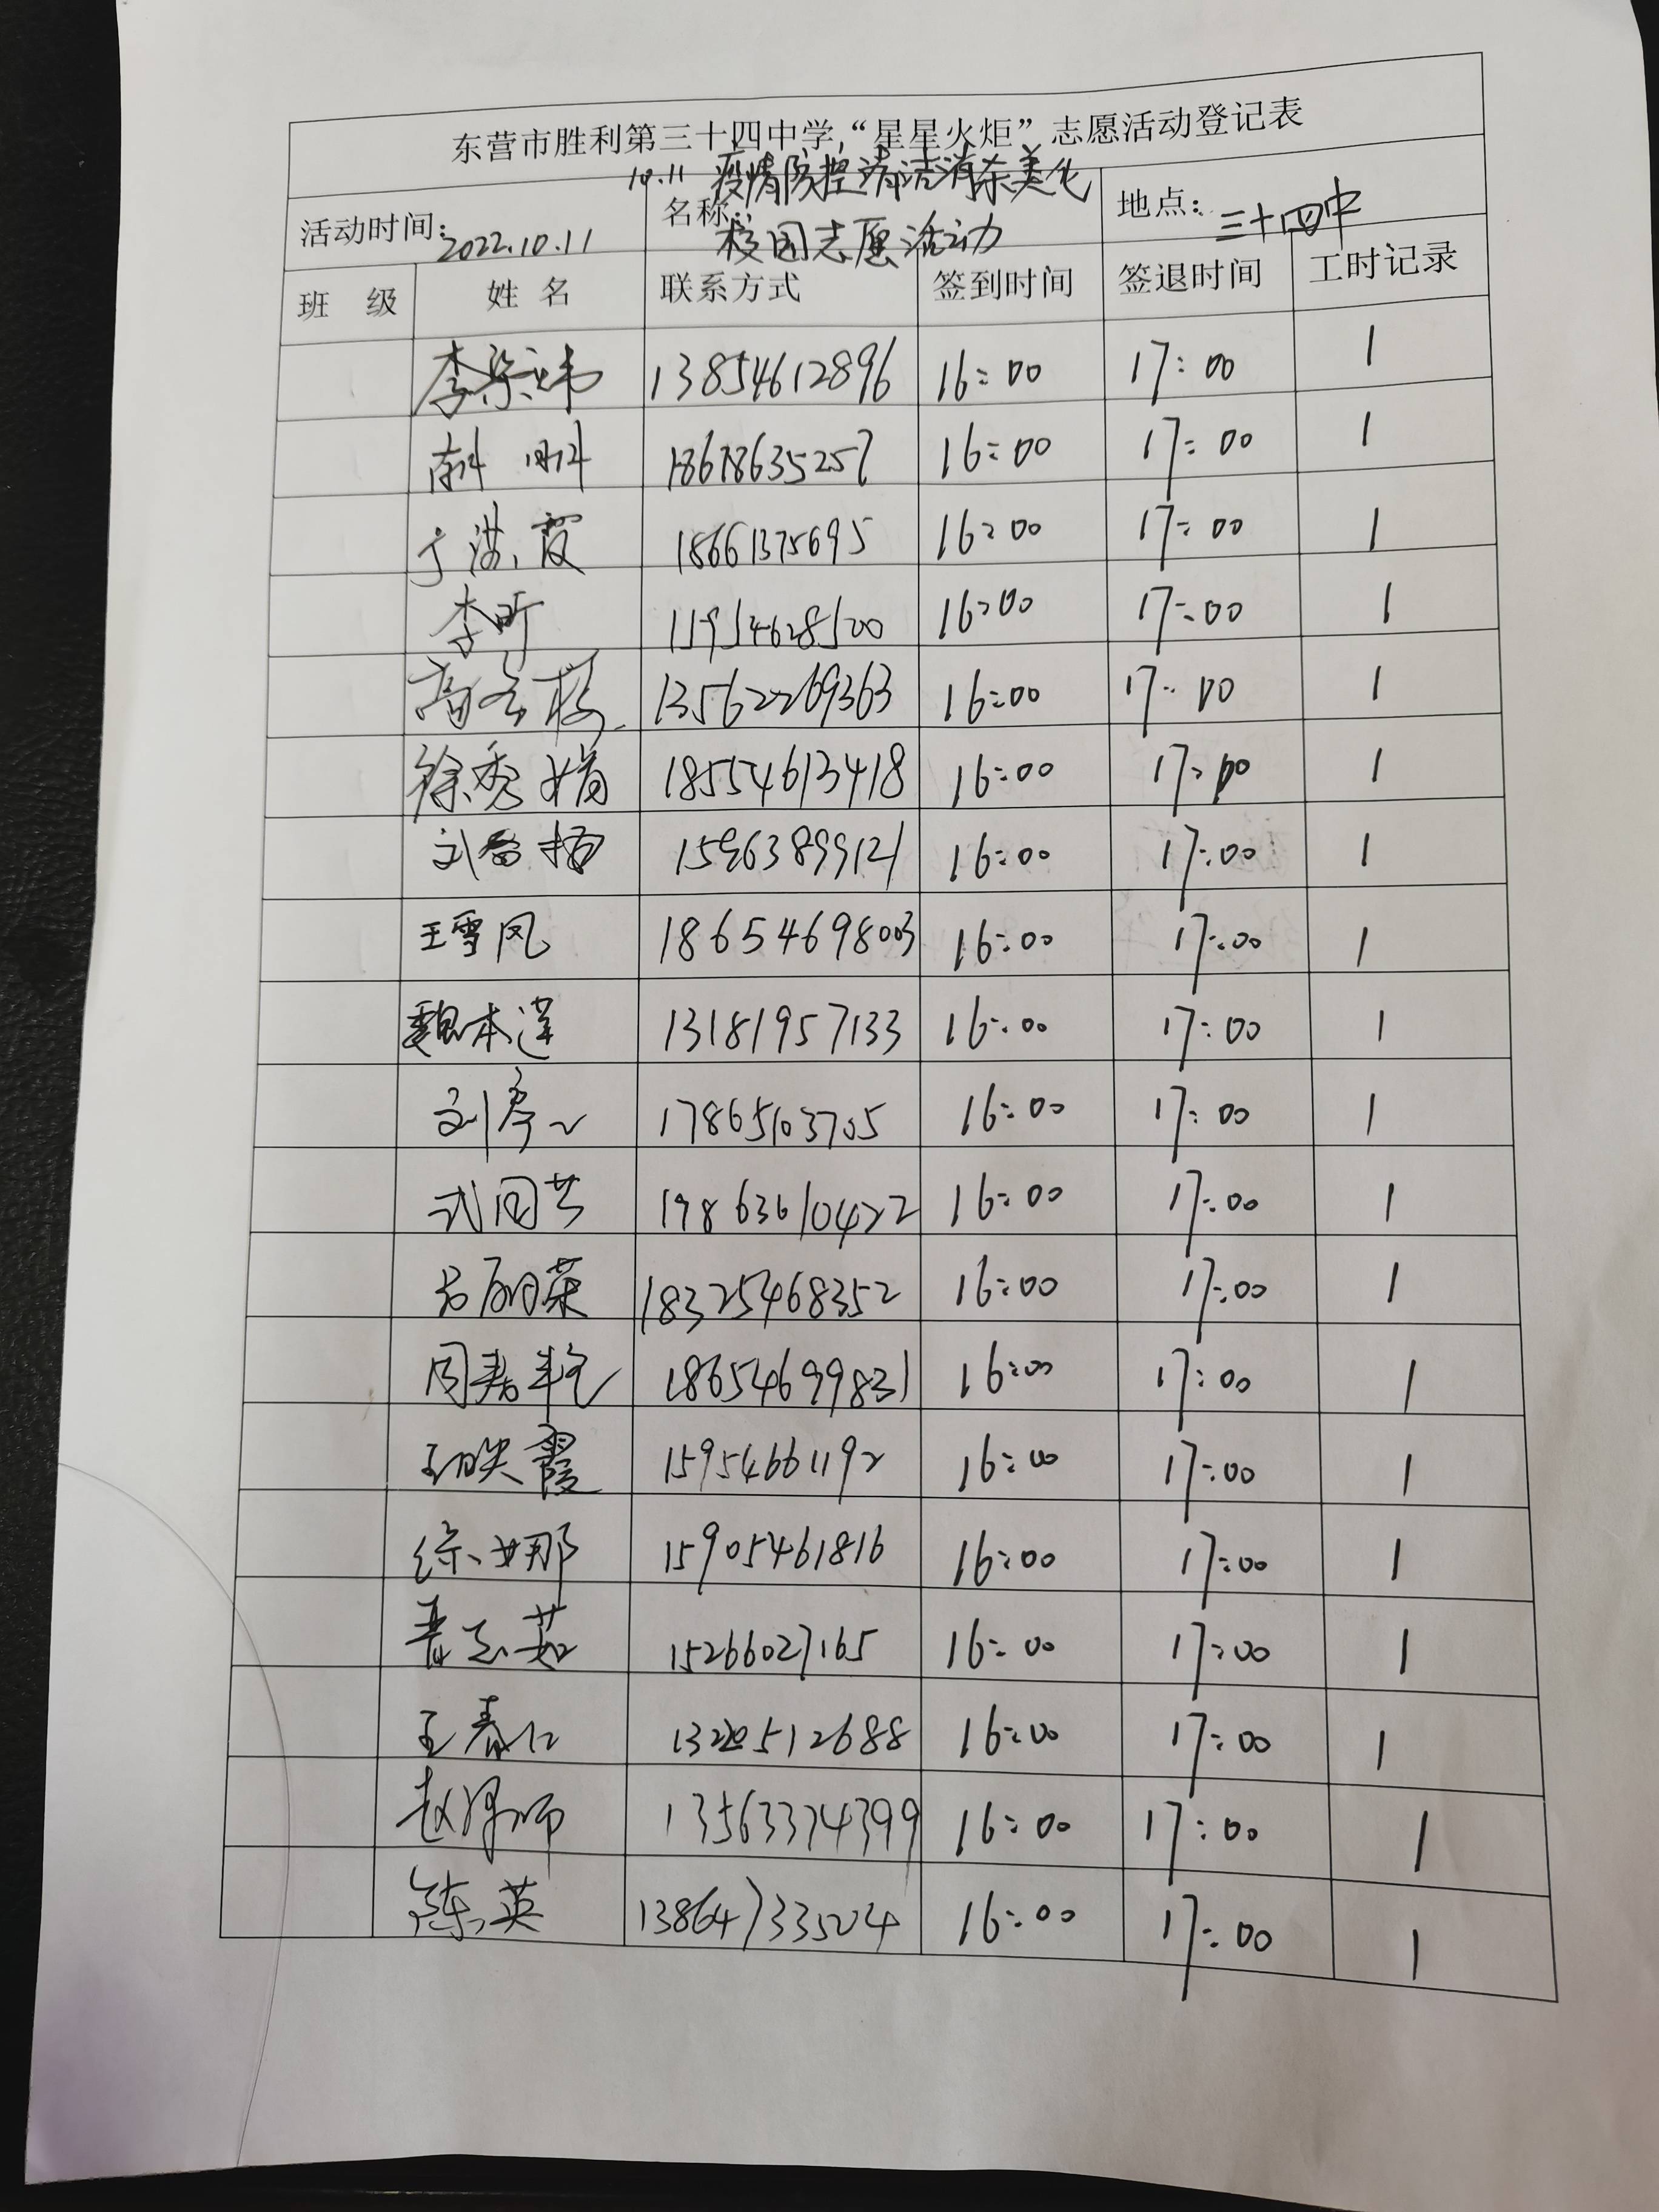 东营市胜利第三十四中学“星星火炬”志愿活动登记表
活动时间: 2022.10.11 名称: 10.11 疫情防控清洁消杀美化 地点: 三十四中
校园志愿活动
班 级 姓 名 联系方式 签到时间 签退时间 工时记录
13854612896 16:00 17:00 1
18678635257 16:00 17:00 1
于洪霞 18661375695 16:00 17:00 1
李昕 16:00 17:00 1
13562269363 16:00 17:00 1
徐秀娟 18554613418 16:00 17:00 1
16:00 17:00 1
王雪凤 18654698003 16:00 17:00 1
魏本莲 13181957133 16:00 17:00 1
17865103705 16:00 17:00 1
19863610422 16:00 17:00 1
18325468352 16:00 17:00 1
18654699831 16:00 17:00 1
王映霞 15954661192 16:00 17:00 1
徐娜 15905461816 16:00 17:00 1
15266027165 16:00 17:00 1
王春仁 16:00 17:00 1
13563374399 16:00 17:00 1
陈英 13864733504 16:00 17:00 1